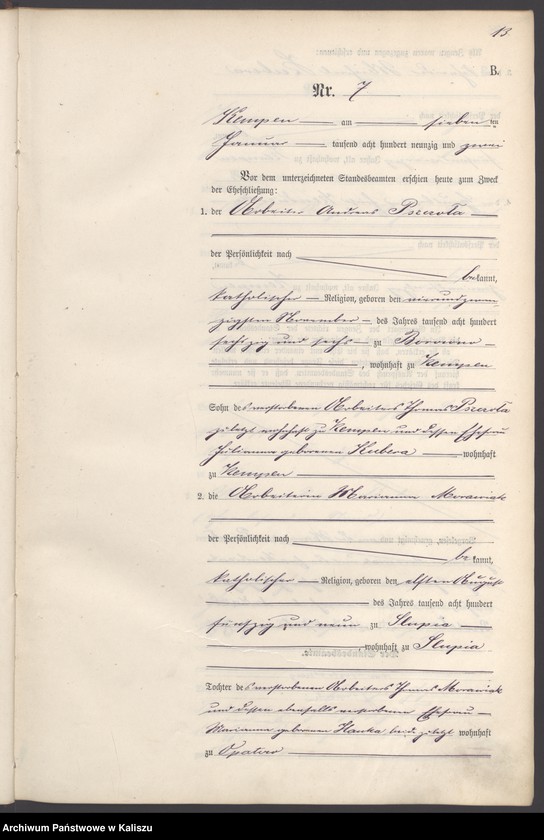 13
B.
Nr. 7
Kempen am sieben ten
Januar tausend acht hundert neunzig und zwei
Vor dem unterzeichneten Standesbeamten erschien heute zum Zweck
der Eheschließung:
1. der Arbeiter Andreas Pszczota
der Persönlichkeit nach
bekannt,
katholischer Religion, geboren den vierundzwan
zigsten November des Jahres tausend acht hundert
sechszig und sechs zu
, wohnhaft zu Kempen
Sohn des verstorbenen Arbeiters Thomas Pszczota
zuletzt wohnhaft zu Kempen und dessen Ehefrau
Julianna geborenen Kubera wohnhaft
zu Kempen
2. die Arbeiterin Marianna Morawiak
der Persönlichkeit nach
bekannt,
katholischer Religion, geboren den elften August
des Jahres tausend acht hundert
fünfzig und neun zu Slupia
, wohnhaft zu Slupia
Tochter des verstorbenen Arbeiters Thomas Morawiak
und dessen ebenfalls verstorbenen Ehefrau
Marianna geborenen beide zuletzt wohnhaft
zu Opatow
Archiwum Państwowe w Kaliszu